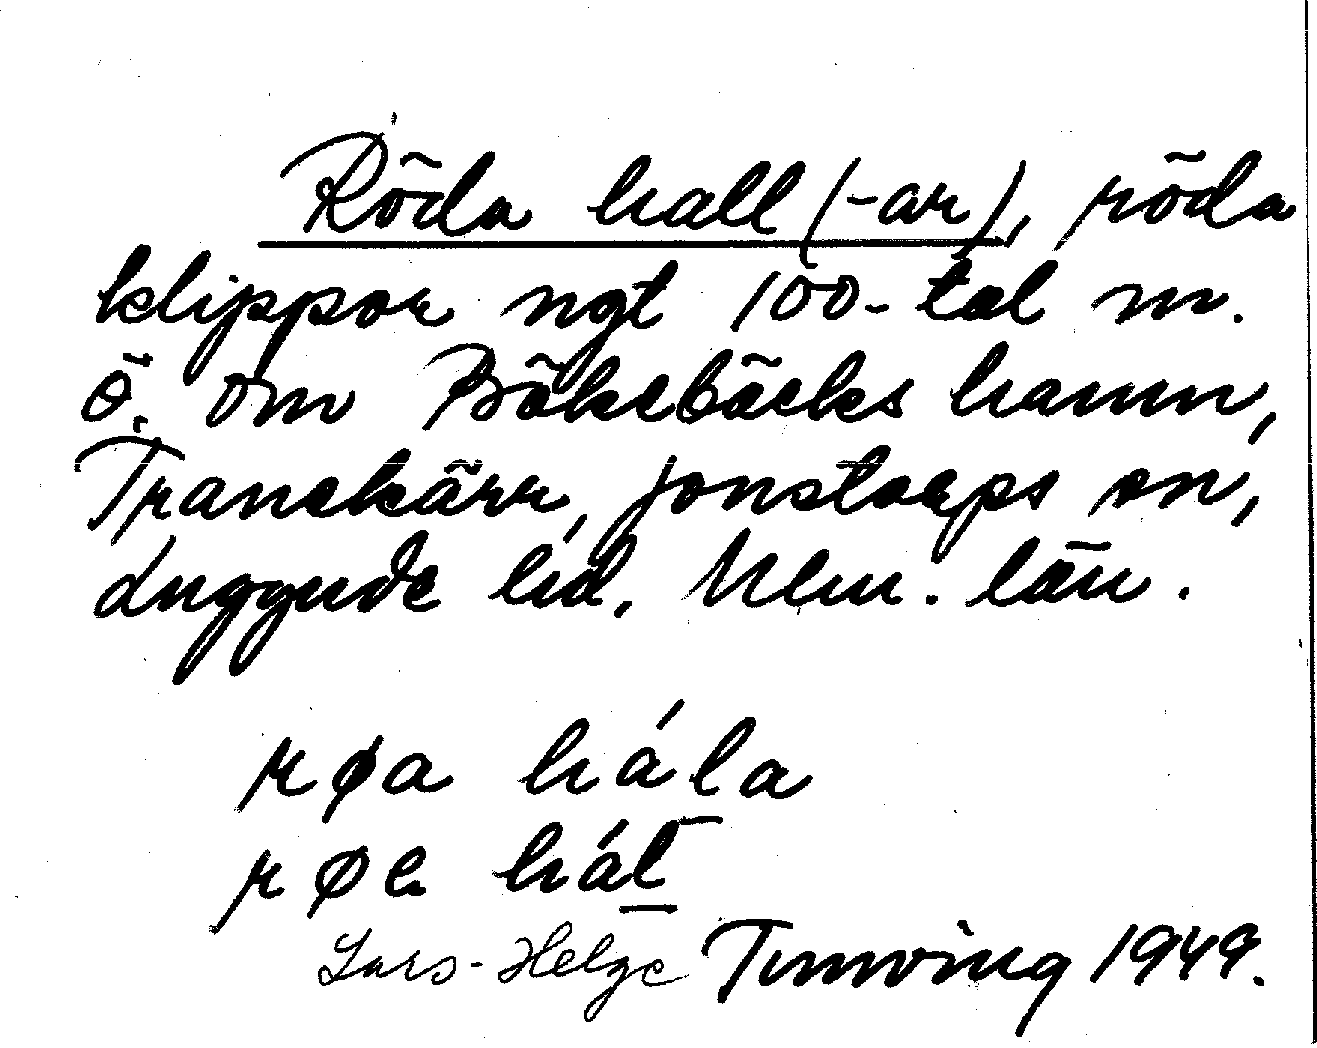 Röda hall (-ar), röda
klippor ngt 100-tal m.
ö. om Bökebäcks hamn,
Tranekärr, Jonstorps sn,
Luggude hd. Mlm. län.
røa hála
røe hál
Lars-Helge Tunving 1949.